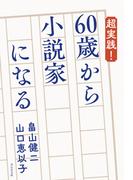 超実践!
60歳から
小説家
になる
畠山健二
山口恵以子